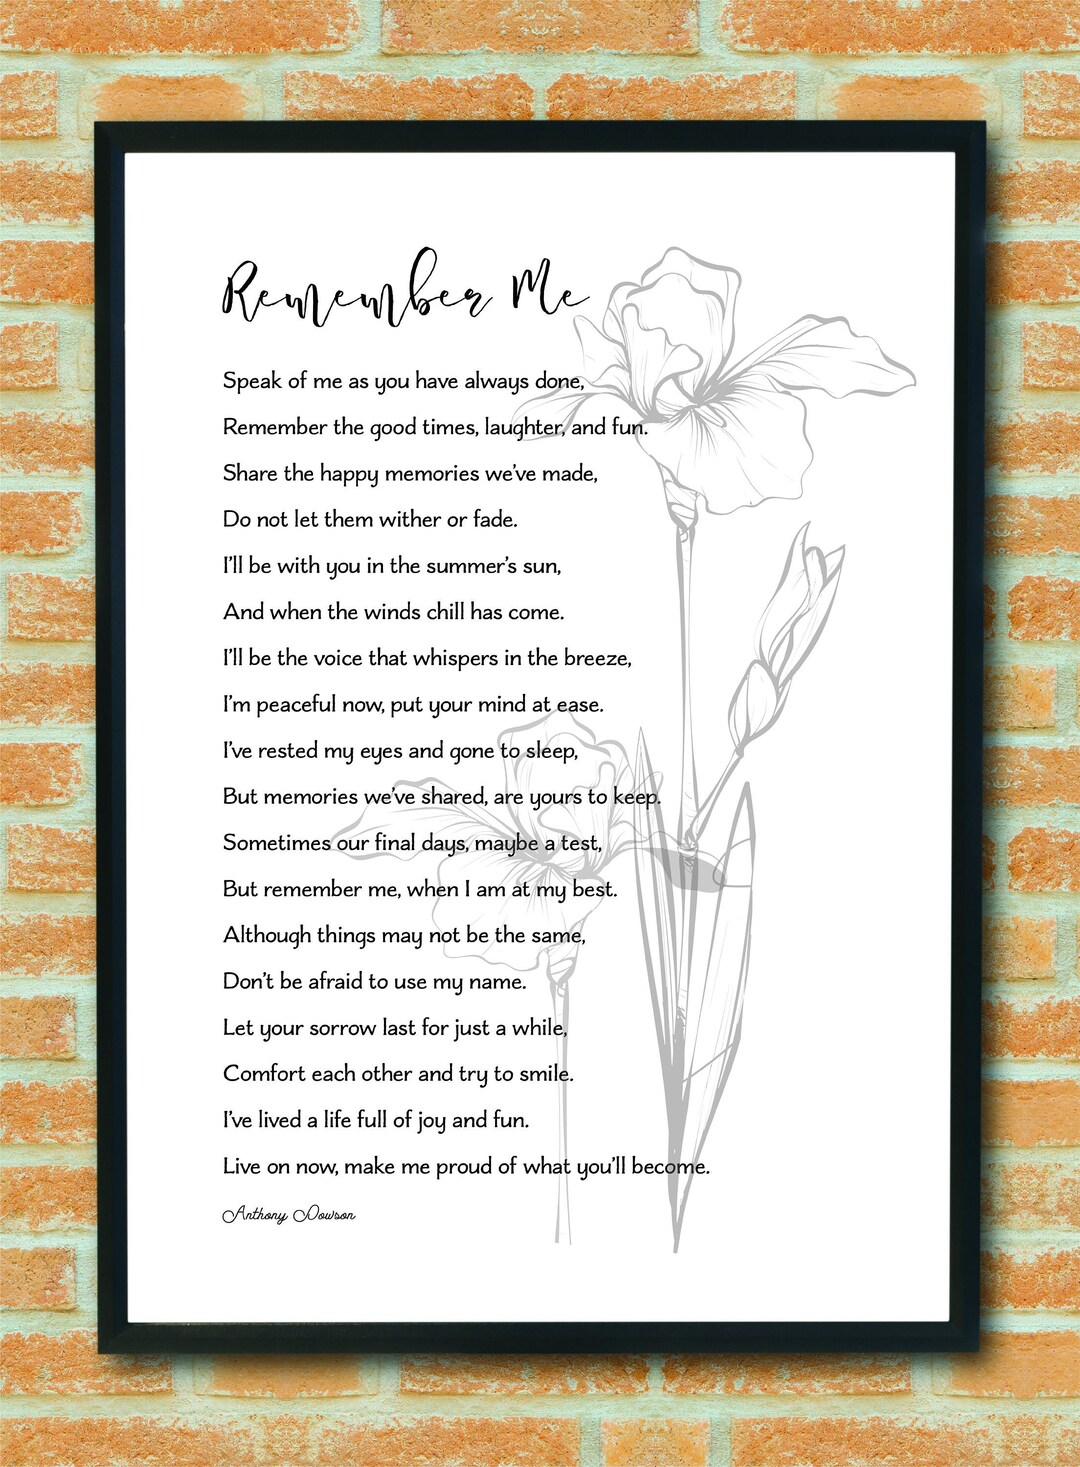 Remember Me
Speak of me as you have always done,
Remember the good times, laughter, and fun.
Share the happy memories we've made,
Do not let them wither or fade.
I'll be with you in the summer's sun,
And when the winds chill has come.
I'll be the voice that whispers in the breeze,
I'm peaceful now, put your mind at ease.
I've rested my eyes and gone to sleep,
But memories we've shared, are yours to keep.
Sometimes our final days, maybe a test,
But remember me, when I am at my best.
Although things may not be the same,
Don't be afraid to use my name.
Let your sorrow last for just a while,
Comfort each other and try to smile.
I've lived a life full of joy and fun.
Live on now, make me proud of what you'll become.
Anthony Dowson